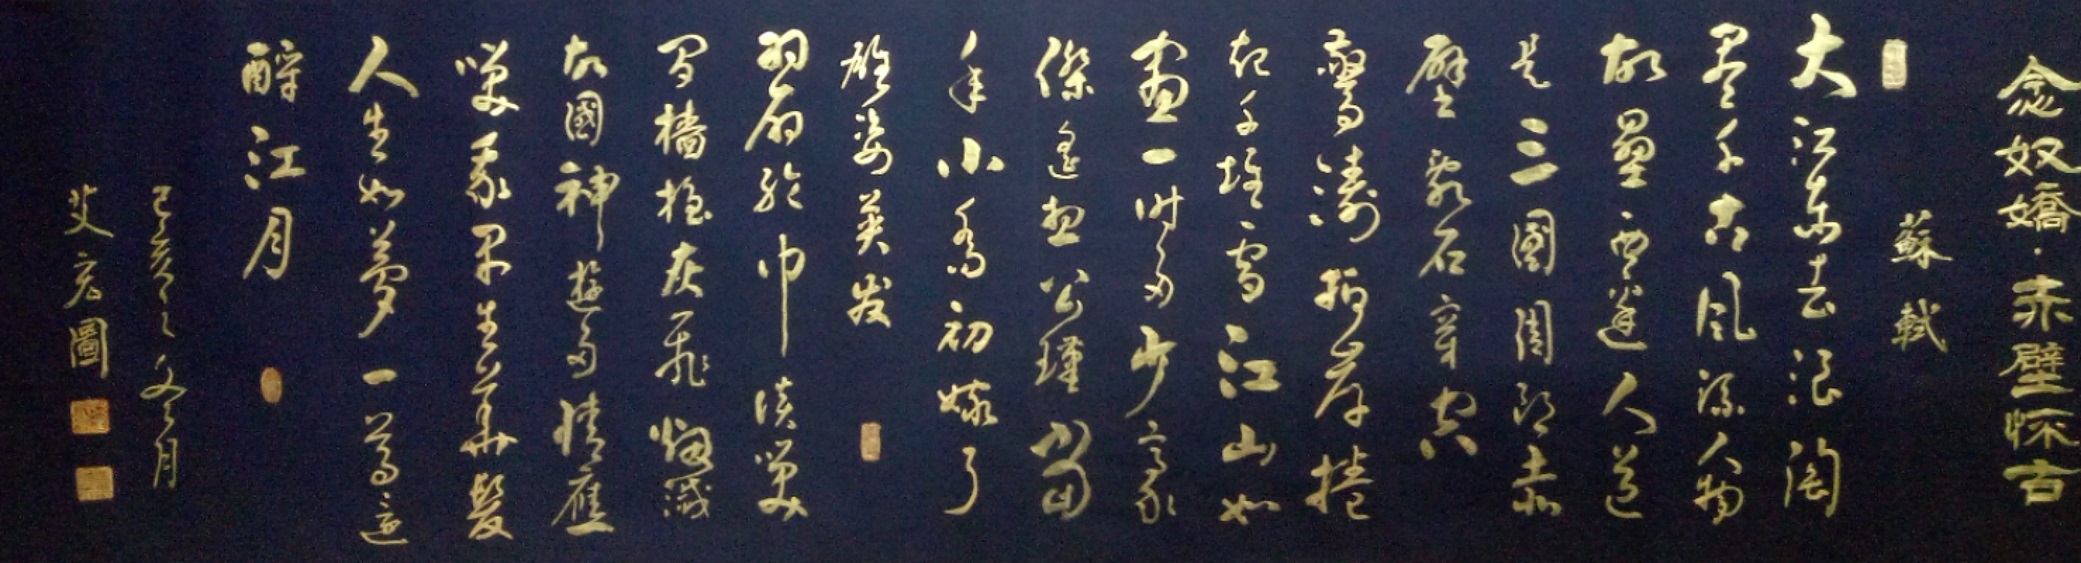 念奴嬌·赤壁怀古
蘇軾
大江东去浪淘
尽千古风流人物
故壘西邊人道
是三國周郎赤
壁亂石穿空
驚濤拍岸捲
起千堆雪江山如
畫一时多少豪
傑遙想公瑾當
年小喬初嫁了
雄姿英发
羽扇纶巾谈笑
間檣櫓灰飛烟滅
故國神遊多情應
笑我早生華髮
人生如夢一尊還
酹江月
己亥之冬月
艾宏圖